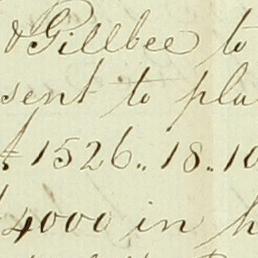 & Gillbee to
sent to pla
1526.. 18.. 10
4000 in h